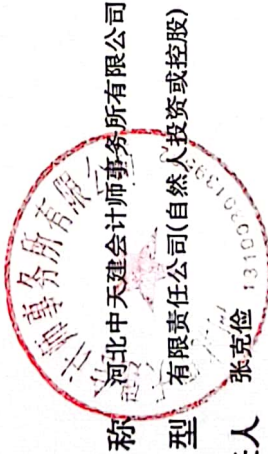 称 河北中天建会计师事务所有限公司
型 有限责任公司(自然人投资或控股)
人 张克俭
计师事务所有限